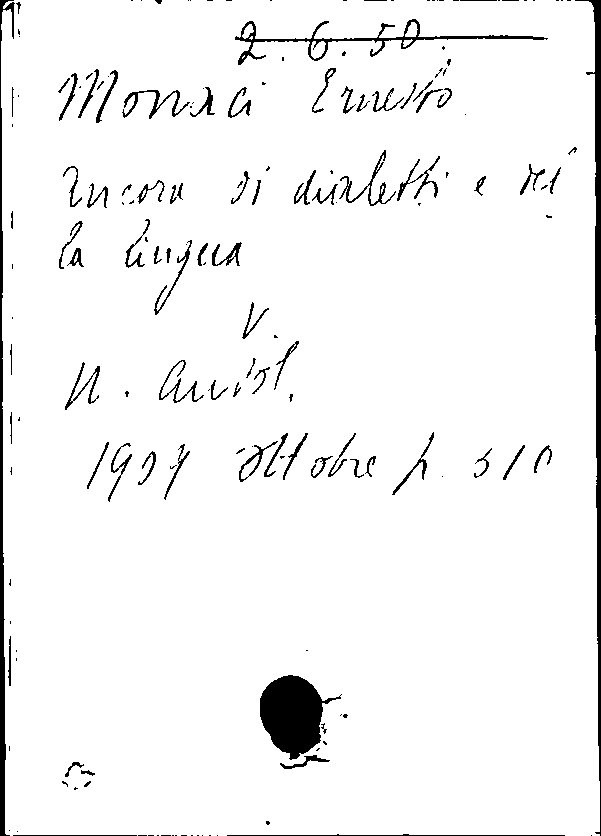 2.6.50.
Monaci Ernesto
Ancora di dialetti e del
la lingua
V.
N. Antol.
1909 ottobre p. 510